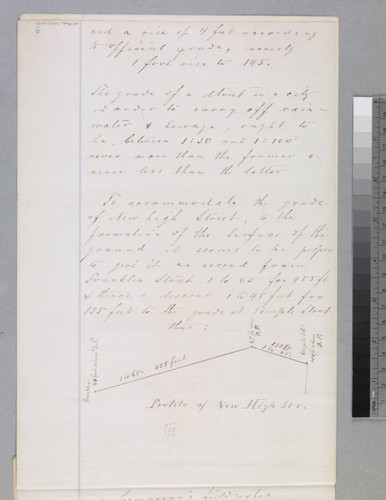 and a rise of 4 feet according
to official grade, nearly
1 foot rise to 145.
The grade of a Street in a city
in order to carry off rain
water & Sewage, ought to
be between 1:30 and 1:100
never more than the former &
never less than the latter
To accommodate the grade
of New High Street, to the
formation of the surface of the
ground it seems to be proper
to give it an ascend from
Franklin Street 1 to 65 for 455 ft
& thence a descend 1 to 45 feet for
135 feet to the grade at Temple Street
thus:
1 to 65 455 feet
Profile of New High Str.